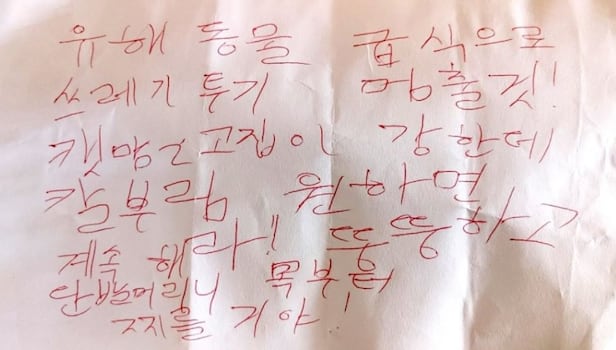 유해 동물 급식으로
쓰레기 투기 멈출것!
캣맘ㄴ 고집이 강한데
칼부림 원하면
계속 해라! 뚱뚱하고
단발머리니 목부터
그지를 거야!